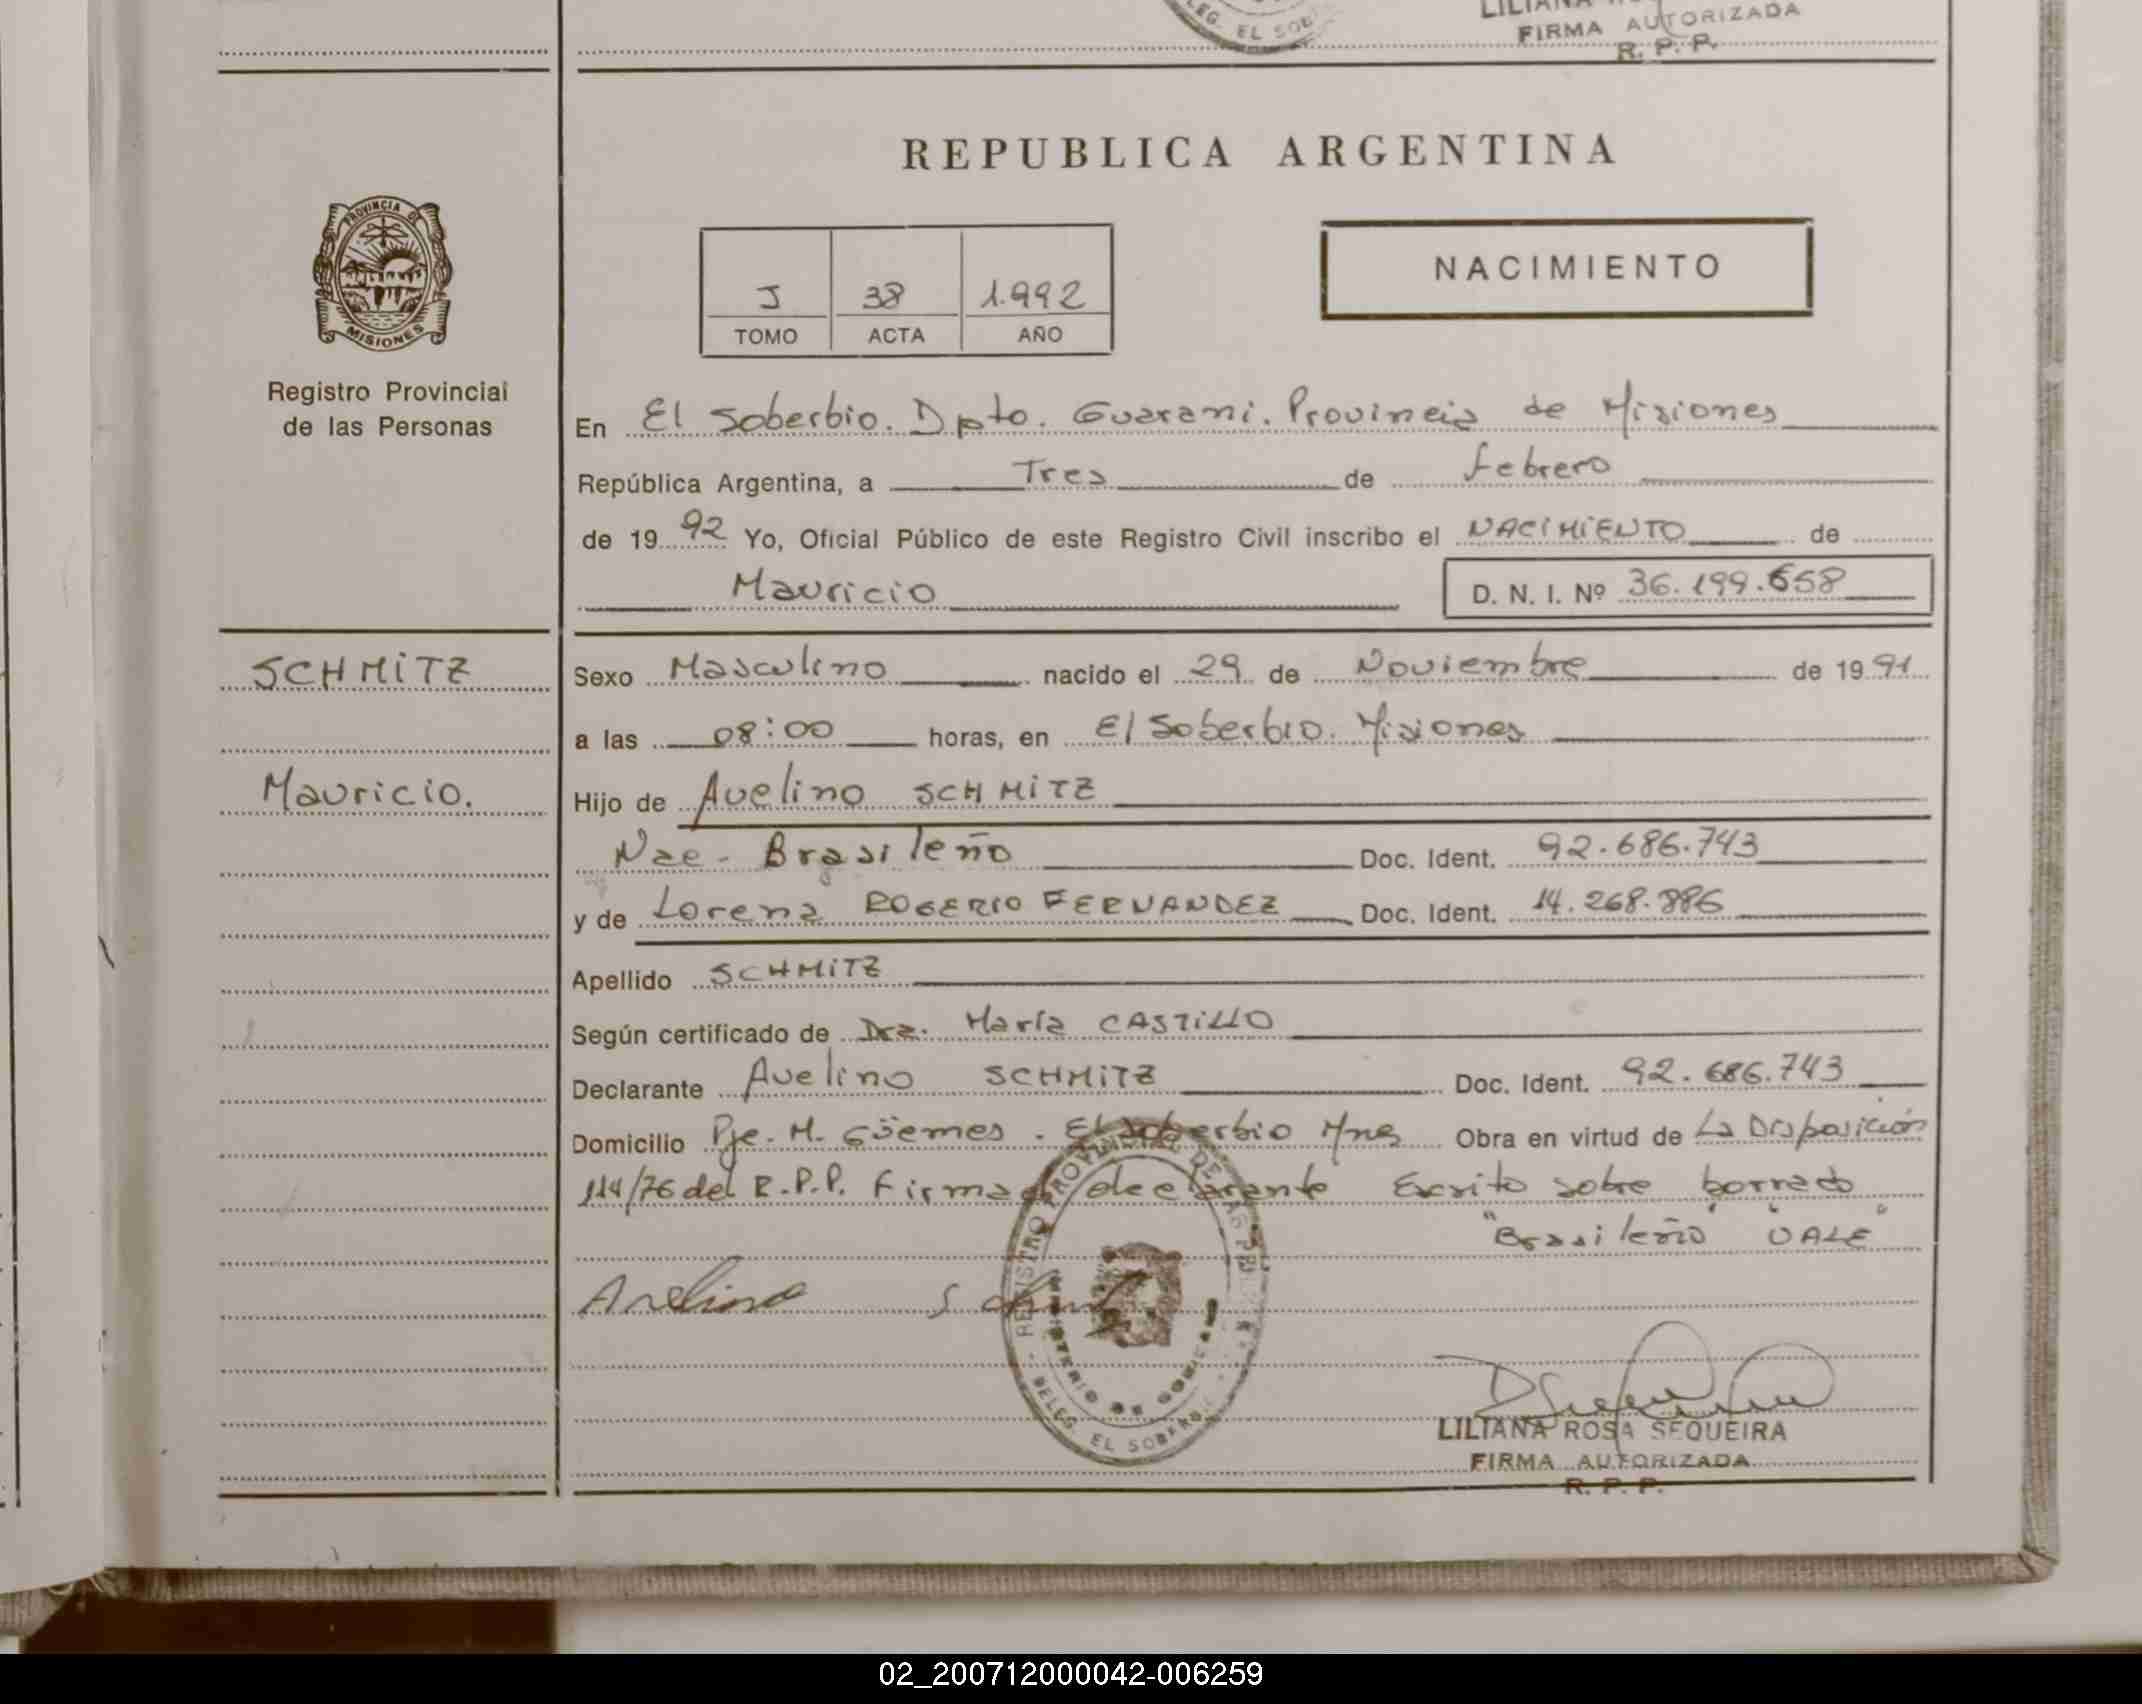 LEG. EL SOB
LILIANA
FIRMA AUTORIZADA
R. P. P.
REPUBLICA ARGENTINA
PROVINCIA DE
MISIONES
Registro Provincial
de las Personas
J 38 1.992
TOMO ACTA AÑO
NACIMIENTO
En El Soberbio. Dpto. Guarani. Provincia de Misiones
República Argentina, a Tres de febrero
de 19 92 Yo, Oficial Público de este Registro Civil inscribo el NACIMIENTO de
Mauricio D. N. I. Nº 36.199.658
SCHMITZ
Mauricio.
Sexo Masculino nacido el 29 de Noviembre de 19 91
a las 08:00 horas, en El Soberbio. Misiones
Hijo de Avelino SCHMITZ
Nac- Brasileño Doc. Ident. 92.686.743
y de Lorena ROGERIO FERNANDEZ Doc. Ident. 14.268.886
Apellido SCHMITZ
Según certificado de Dra. María CASTILLO
Declarante Avelino SCHMITZ Doc. Ident. 92.686.743
Domicilio Pje. M. Güemes. El Soberbio Mnes Obra en virtud de La Disposición
114/76 del R.P.P. Firma declarante Escrito sobre borrado
"Brasileño" "VALE"
Avelino
REGISTRO PROVINCIAL DE LAS PERSONAS
MINISTERIO DE GOBIERNO
DELEG. EL SOBERBIO
LILIANA ROSA SEQUEIRA
FIRMA AUTORIZADA
R. P. P.
02_200712000042-006259